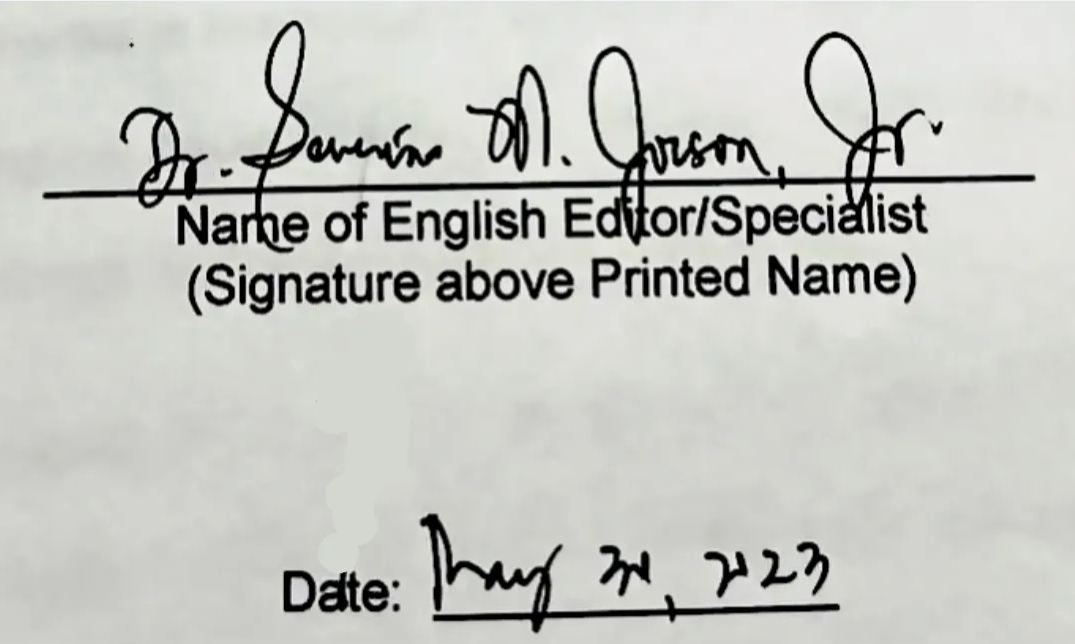 Dr. Severino M. Jorson, Jr.
Name of English Editor/Specialist
(Signature above Printed Name)
Date: May 30, 2023